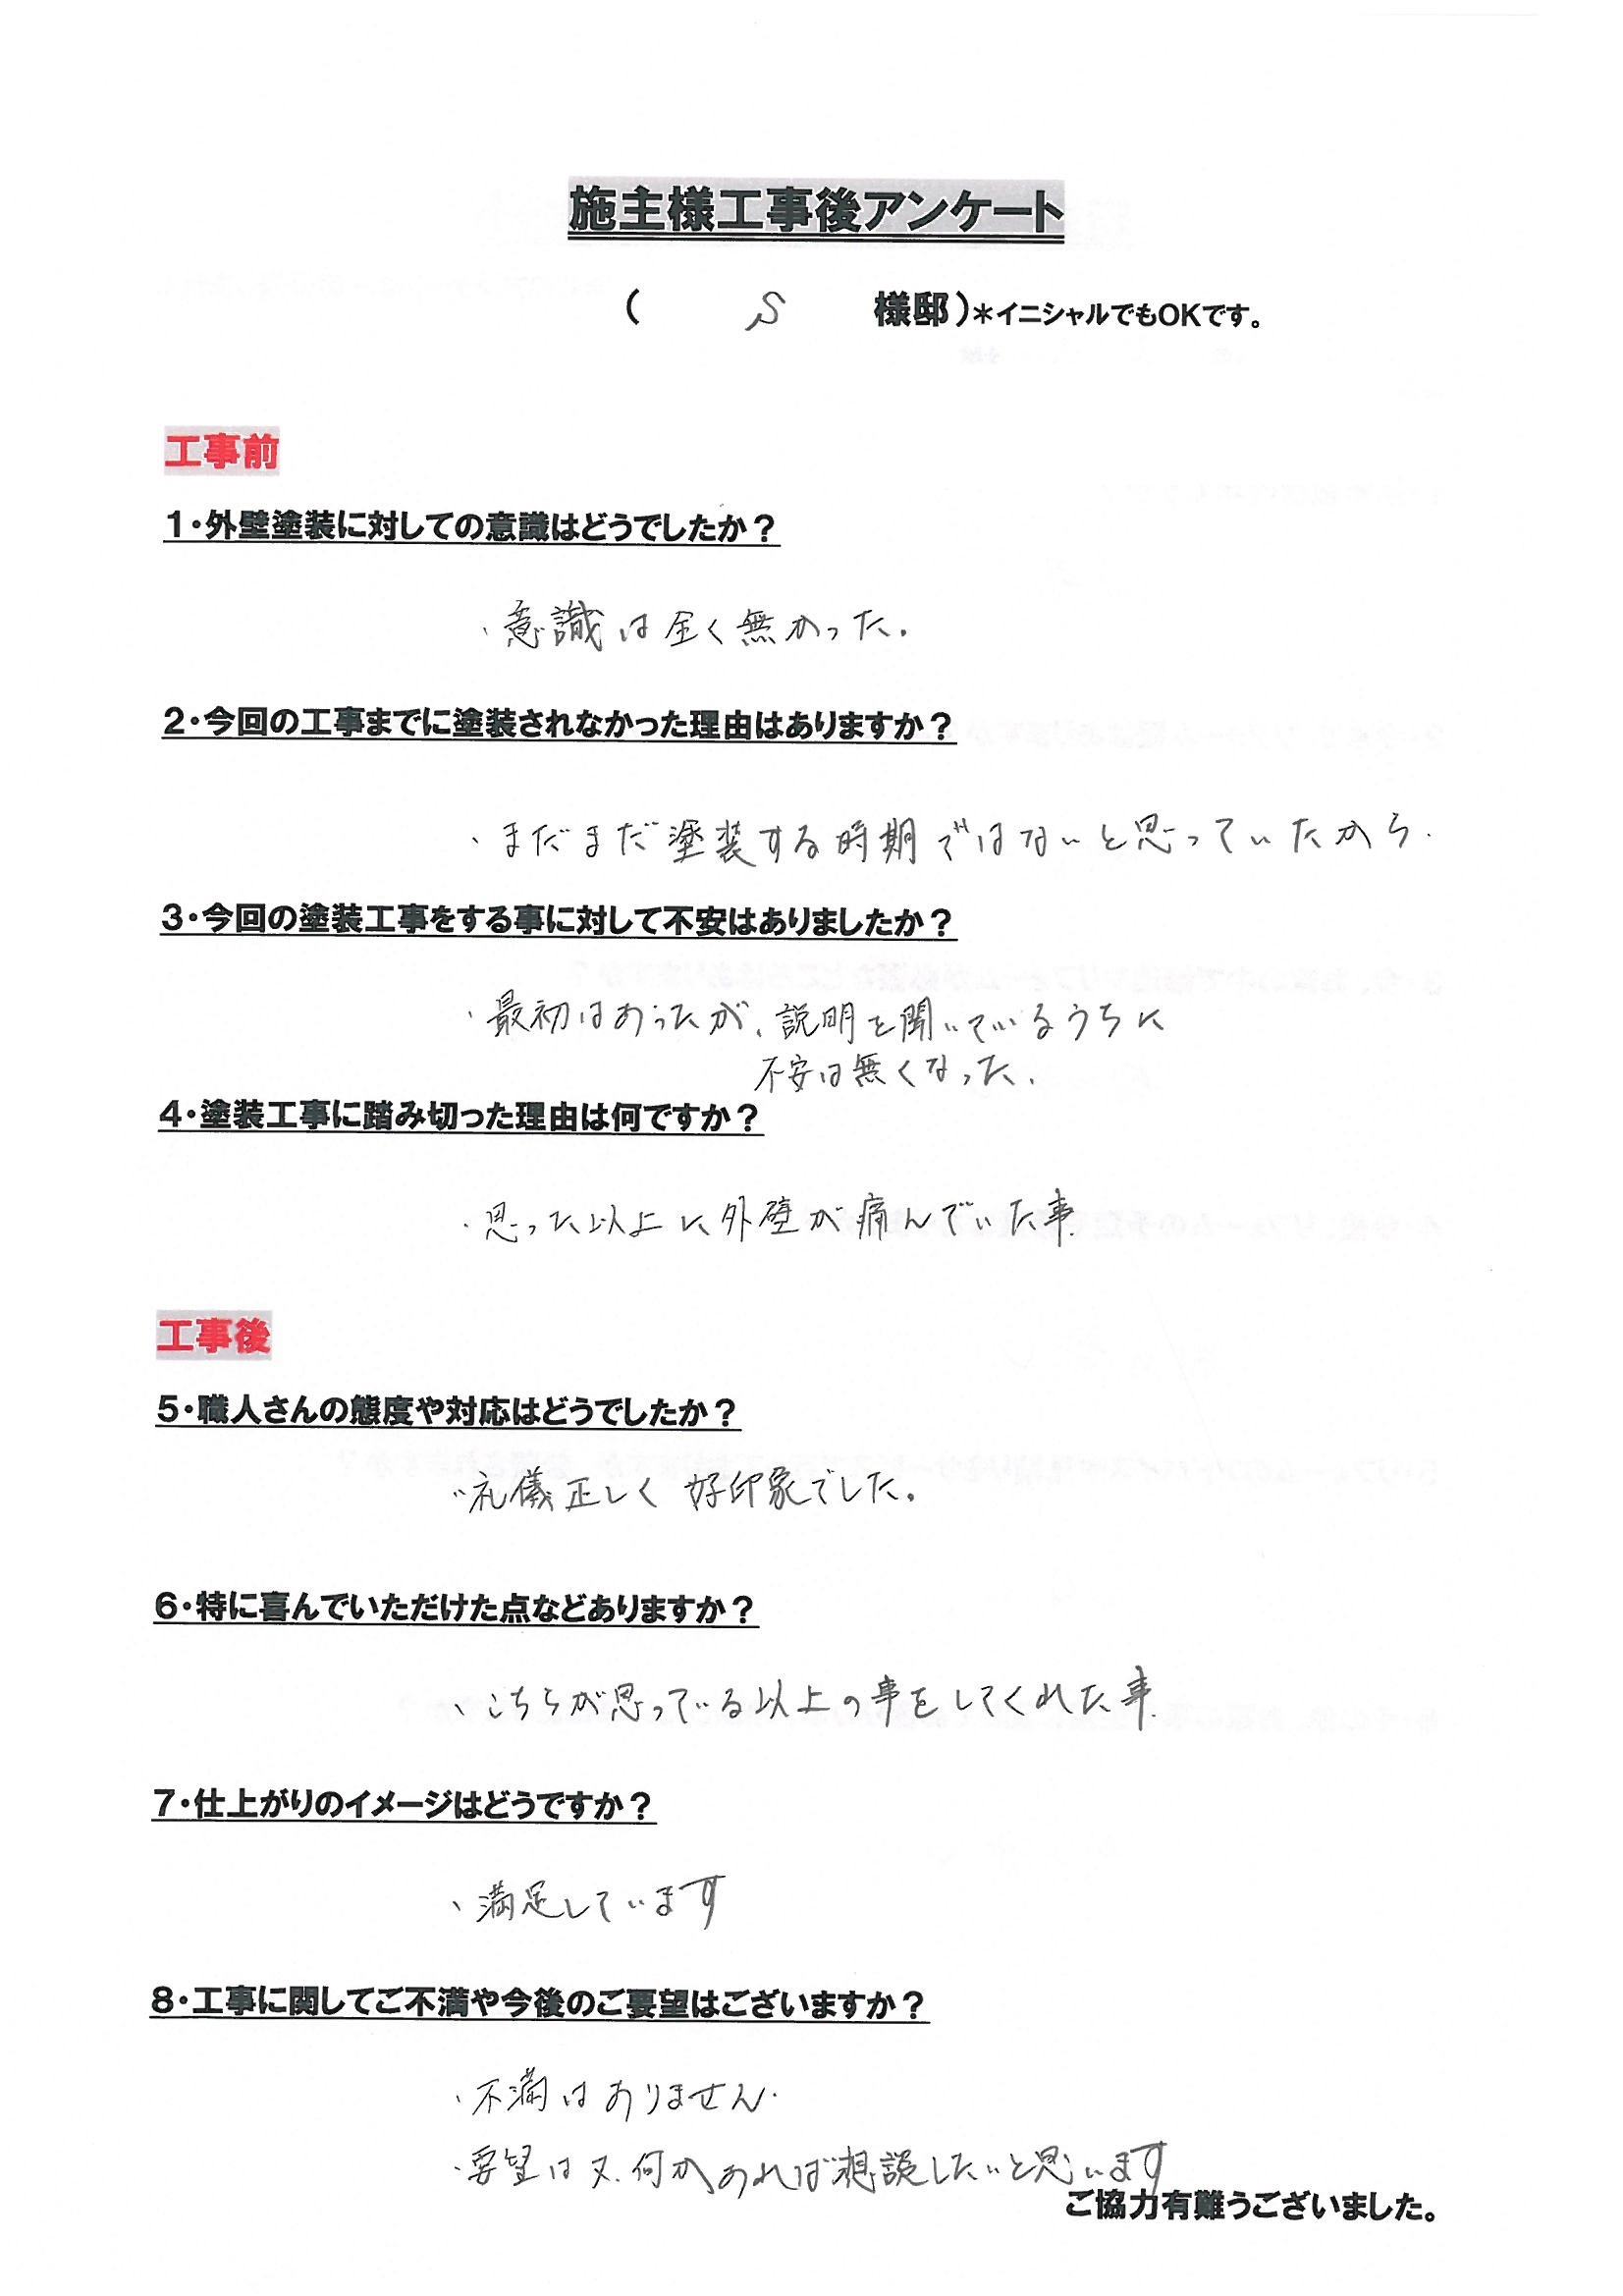 施主様工事後アンケート
( S 様邸)*イニシャルでもOKです。
工事前
1・外壁塗装に対しての意識はどうでしたか？
・意識は全く無かった。
2・今回の工事までに塗装されなかった理由はありますか？
・まだまだ塗装する時期ではないと思っていたから.
3・今回の塗装工事をする事に対して不安はありましたか？
・最初はあったが、説明を聞いているうちに
不安は無くなった.
4・塗装工事に踏み切った理由は何ですか？
・思った以上に外壁が痛んでいた事.
工事後
5・職人さんの態度や対応はどうでしたか？
・礼儀正しく 好印象でした。
6・特に喜んでいただけた点などありますか？
・こちらが思っている以上の事をしてくれた事.
7・仕上がりのイメージはどうですか？
・満足しています
8・工事に関してご不満や今後のご要望はございますか？
・不満はありません.
・要望は又.何かあれば想談したいと思います
ご協力有難うございました。